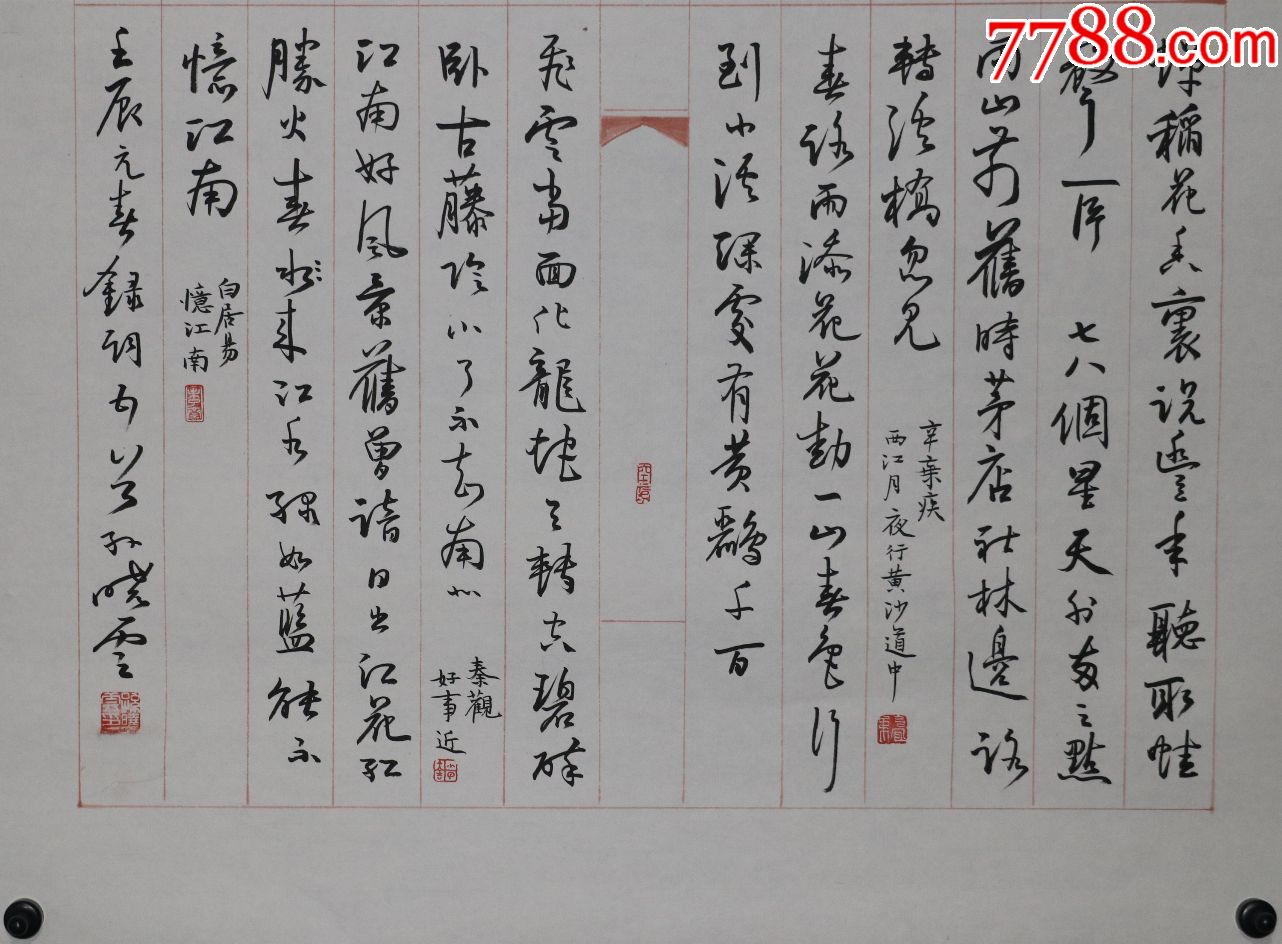 7788.com
蟬稻花香裏説豐年聽取蛙
聲一片 七八個星天外兩三點
雨山前舊時茅店社林邊路
轉溪橋忽見
辛棄疾
西江月夜行黄沙道中
春路雨添花花動一山春色行
到小溪深處有黄鸝千百
飛雲當面化龍蛇夭轉空碧醉
卧古藤陰下了不知南北
秦觀
好事近
江南好風景舊曾諳日出江花紅
勝火春水來江水緑如藍能不
憶江南
白居易
憶江南
壬辰元春録詞五首孫曉雲